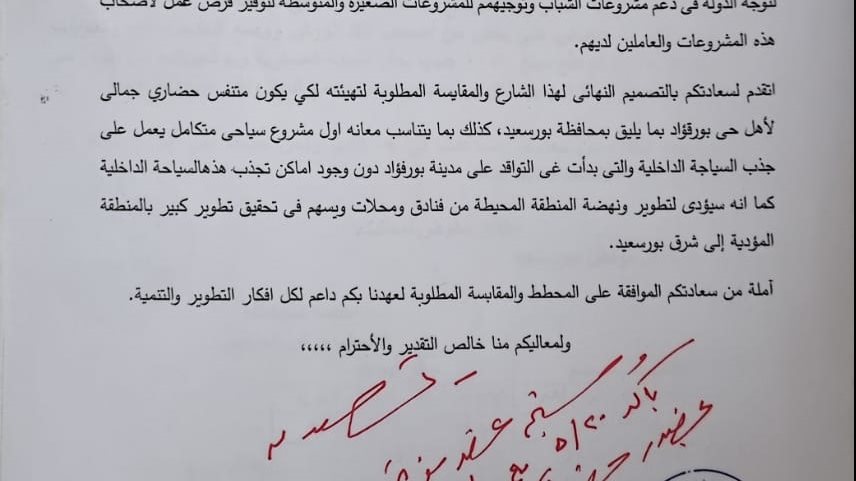 لتوجه الدولة فى دعم مشروعات الشباب وتوجيههم للمشروعات الصغيرة والمتوسطة لتوفير فرص عمل لأصحاب
هذه المشروعات والعاملين لديهم.
اتقدم لسعادتكم بالتصميم النهائى لهذا الشارع والمقايسة المطلوبة لتهيئته لكي يكون متنفس حضاري جمالى
لأهل حى بورفؤاد بما يليق بمحافظة بورسعيد، كذلك بما يتناسب معانه اول مشروع سياحى متكامل يعمل على
جذب السياجة الداخلية والتى بدأت غى التواقد على مدينة بورفؤاد دون وجود اماكن تجذب هذهالسياحة الداخلية
كما انه سيؤدى لتطوير ونهضة المنطقة المحيطة من فنادق ومحلات ويسهم فى تحقيق تطوير كبير بالمنطقة
المؤدية إلى شرق بورسعيد.
آملة من سعادتكم الموافقة على المخطط والمقابسة المطلوبة لعهدنا بكم داعم لكل افكار التطوير والتنمية.
ولمعاليكم منا خالص التقدير والأحترام ،،،،،